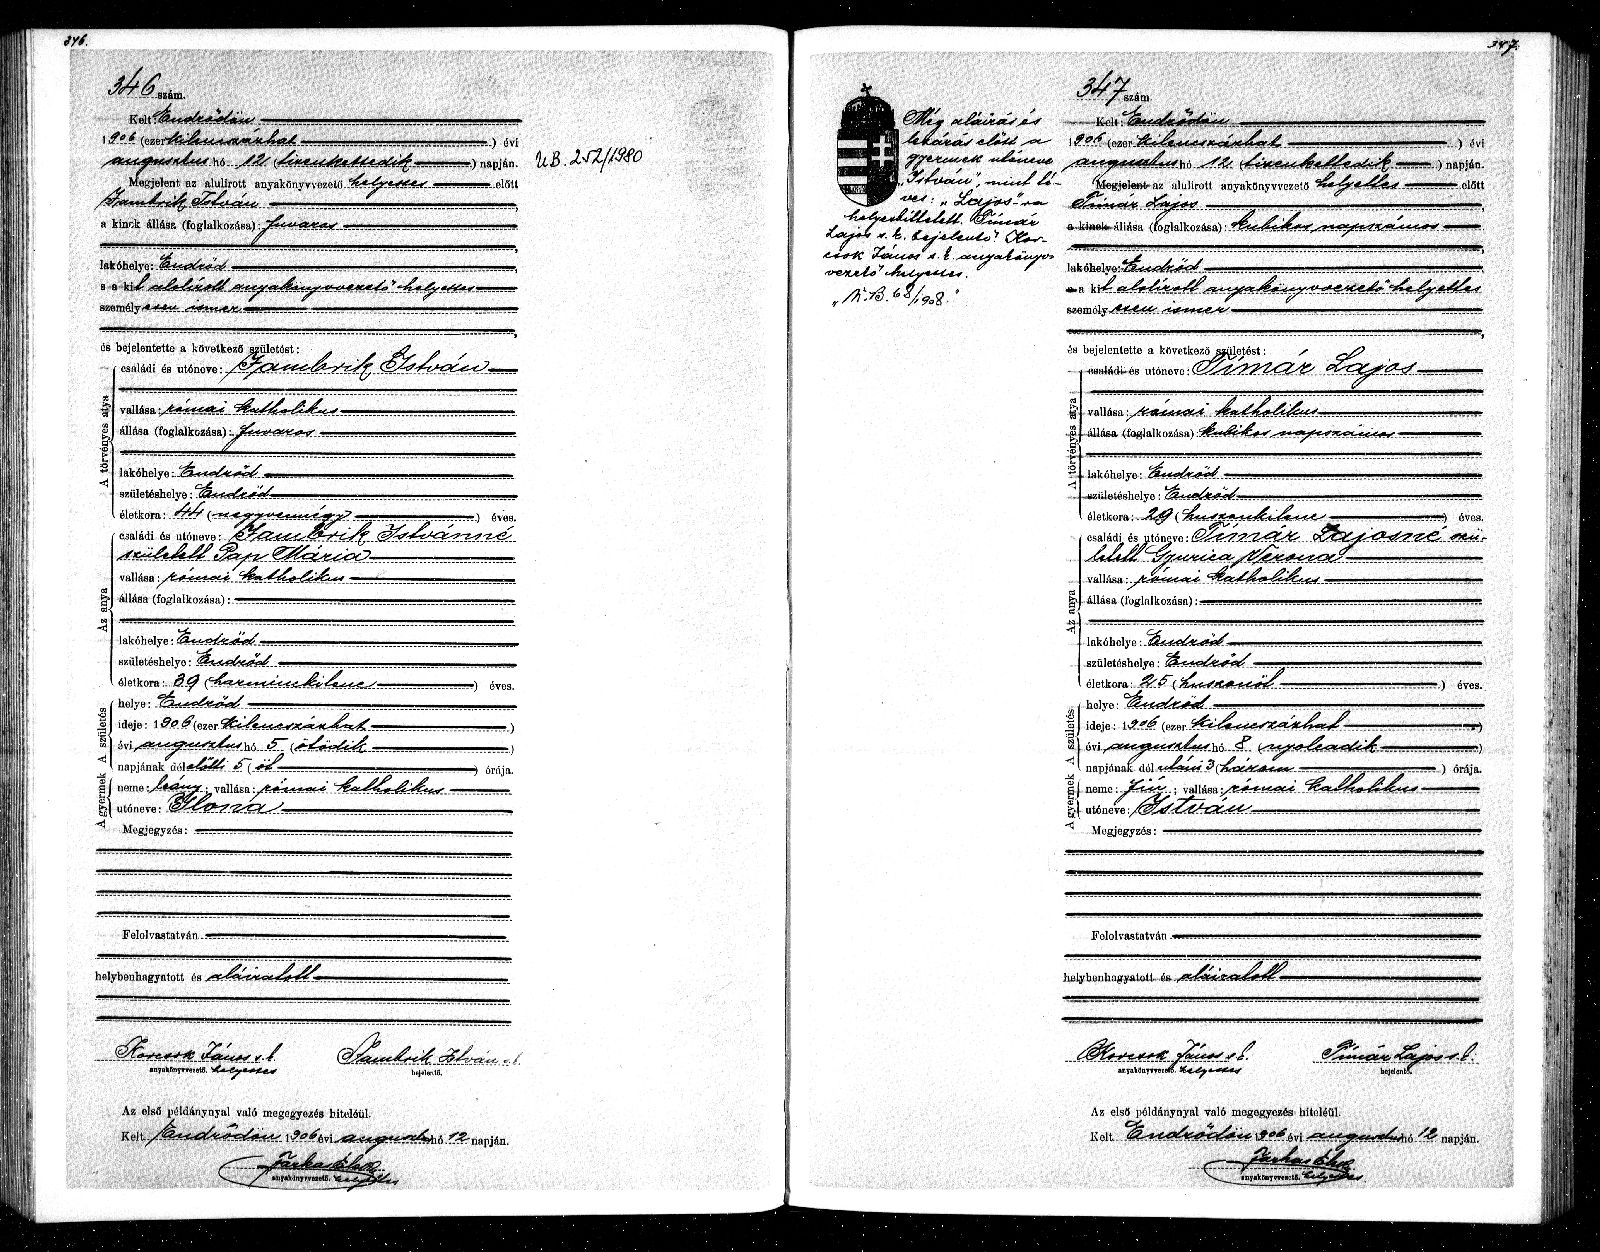 346.
346 szám.
Kelt Endrődön
1906 (ezer kilenczszázhat ) évi
augusztus hó 12 (tizenkettedik ) napján.
U.B. 252/1980
Megjelent az alulirott anyakönyvvezető helyettes előtt
Jambrik István
a kinek állása (foglalkozása): fuvaros
lakóhelye: Endrőd
s a kit alolírott anyakönyvvezető helyettes
személyesen ismer
és bejelentette a következő születést:
A törvényes atya
családi és utóneve: Jambrik István
vallása: római katholikus
állása (foglalkozása): fuvaros
lakóhelye: Endrőd
születéshelye: Endrőd
életkora: 44 (negyvennégy ) éves.
Az anya
családi és utóneve: Jambrik Istvánné
született Pap Mária
vallása: római katholikus
állása (foglalkozása):
lakóhelye: Endrőd
születéshelye: Endrőd
életkora: 39 (harminckilenc ) éves.
A születés
helye: Endrőd
ideje: 1906 (ezer kilenczszázhat )
évi augusztus hó 5 (ötödik )
napjának dél előtti 5 (öt ) órája.
A gyermek
neme: leány; vallása: római katholikus
utóneve: Ilona
Megjegyzés:
Felolvastatván
helybenhagyatott és aláiratott
Korcsok János s.k. Jambrik István s.k.
anyakönyvvezető. helyettes bejelentő.
Az első példánynyal való megegyezés hiteléül.
Kelt Endrődön 1906 évi augusztus hó 12 napján.
anyakönyvvezető. helyettes
347.
347 szám
Még aláírás és
lezárás előtt a
gyermek utóneve
„István", mint té-
ves: „Lajos"-ra
helyesbíttetett. Tímár
Lajos s.k. bejelentő Kor-
csok János s.k. anyakönyv
vezető helyettes.
„K.B. 68/1908."
Kelt Endrődön
1906 (ezer kilenczszázhat ) évi
augusztus hó 12 (tizenkettedik ) napján.
Megjelent az alulirott anyakönyvvezető helyettes előtt
Tímár Lajos
a kinek állása (foglalkozása): kubikos napszámos
lakóhelye: Endrőd
s a kit alolírott anyakönyvvezető helyettes
személyesen ismer
és bejelentette a következő születést:
A törvényes atya
családi és utóneve: Tímár Lajos
vallása: római katholikus
állása (foglalkozása): kubikos napszámos
lakóhelye: Endrőd
születéshelye: Endrőd
életkora: 29 (huszonkilenc ) éves.
Az anya
családi és utóneve: Tímár Lajosné szü-
letett Gyurica Verona
vallása: római katholikus
állása (foglalkozása):
lakóhelye: Endrőd
születéshelye: Endrőd
életkora: 25 (huszonöt ) éves.
A születés
helye: Endrőd
ideje: 1906 (ezer kilenczszázhat )
évi augusztus hó 8 (nyolcadik )
napjának dél utáni 3 (három ) órája.
A gyermek
neme: fiú; vallása: római katholikus
utóneve: István
Megjegyzés:
Felolvastatván
helybenhagyatott és aláiratott
Korcsok János s.k. Tímár Lajos s.k.
anyakönyvvezető. helyettes bejelentő.
Az első példánynyal való megegyezés hiteléül.
Kelt Endrődön 1906 évi augusztus hó 12 napján.
anyakönyvvezető. helyettes